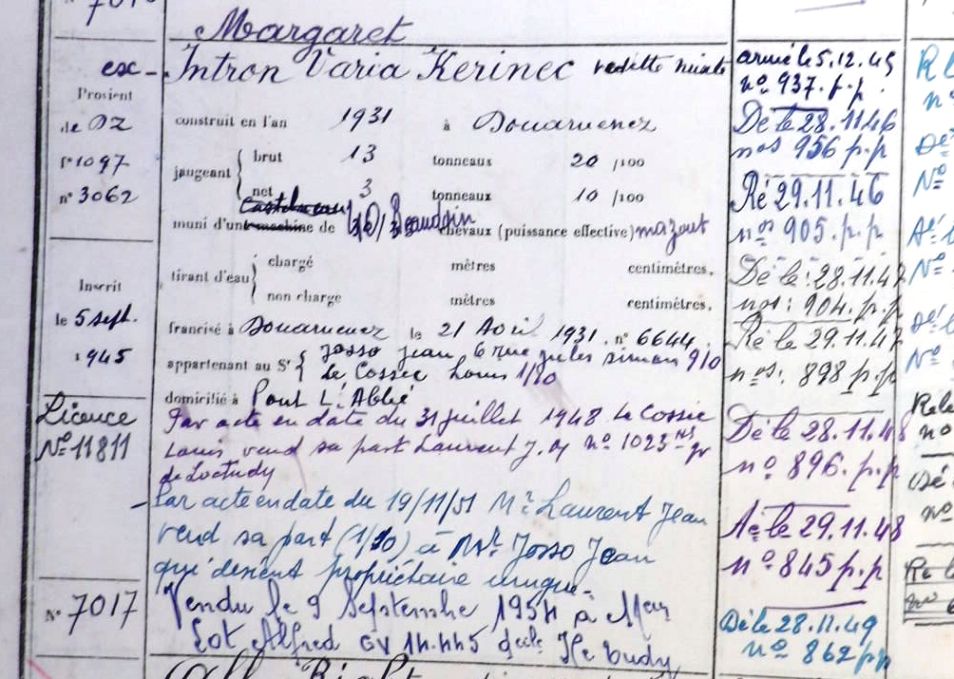 701
Margaret
ex - Intron Varia Kerinec
Provient
de DZ
f° 1097
n° 3062
construit en l'an 1931 à Douarnenez
jaugeant { brut 13 tonneaux 20 /100
net 3 tonneaux 10 /100
muni d'une machine de Baudoin chevaux (puissance effective) mazout
tirant d'eau { chargé mètres centimètres.
non chargé mètres centimètres.
Inscrit
le 5 sept.
1945
francisé à Douarnenez le 21 Avril 1931. n° 6644.
appartenant au Sr { Josso Jean 6 rue Jules Simon 9/10
Le Cossec Louis 1/10
domicilié à Pont L'Abbé
Licence
N° 11811
Par acte en date du 31 juillet 1948 Le Cossec
Louis vend sa part Laurent J. n° 1023
de Loctudy
- Par acte en date du 19/11/51 Mr Laurent Jean
vend sa part (1/10) à Mr Josso Jean
qui devient propriétaire unique -
N° 7017
Vendu le 9 Septembre 1954 à
Lot Alfred 14.445 Ile Tudy
All Right
armé le 5.12.45
n° 937. p.p.
Dé le 28.11.46
nos 956 p.p
Ré 29.11.46
nos 905. p.p
Dé le: 28.11.47
nos: 904. p.p
Ré le 29.11.47
nos: 898 p.p
Dé le 28.11.48
n° 896. p.p
Ae le 29.11.48
n° 845 p.p
Dé le 28.11.49
n° 862 p.p